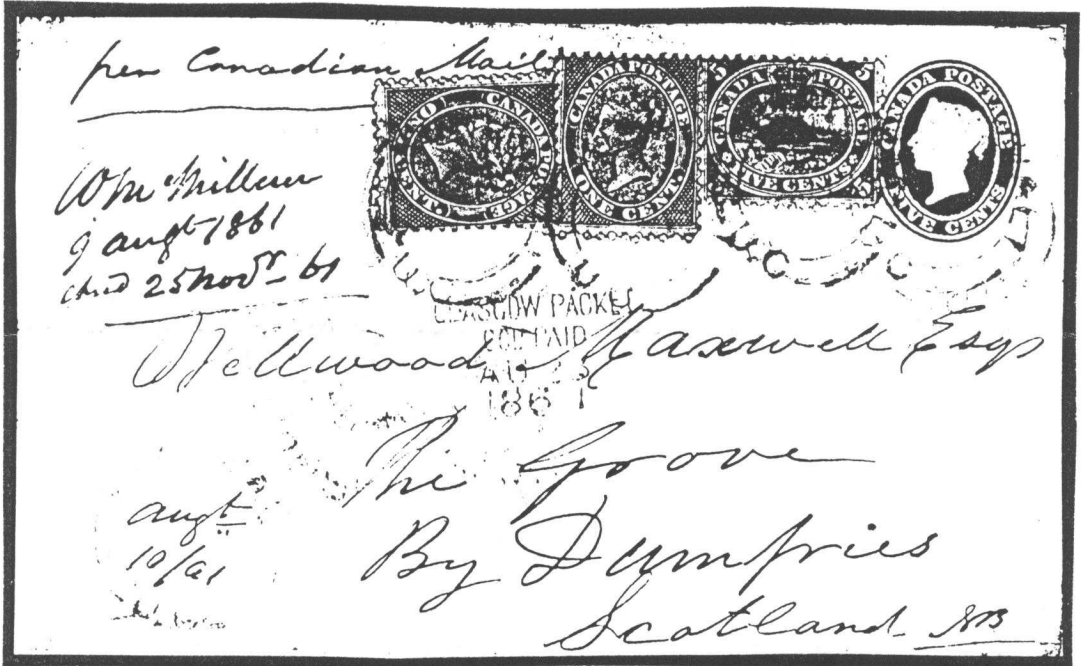 per Canadian Mail
CANADA POSTAGE ONE CENT
CANADA POSTAGE ONE CENT
5 5 CANADA POSTAGE FIVE CENTS 5
CANADA POSTAGE FIVE CENTS
Wm McMillan
9 augt 1861
25 Novr 61
GLASGOW PACKET
PAID
AU
1861
Wellwood Maxwell Esqr
The Grove
By Dumfries
Scotland NB
augt
10/61